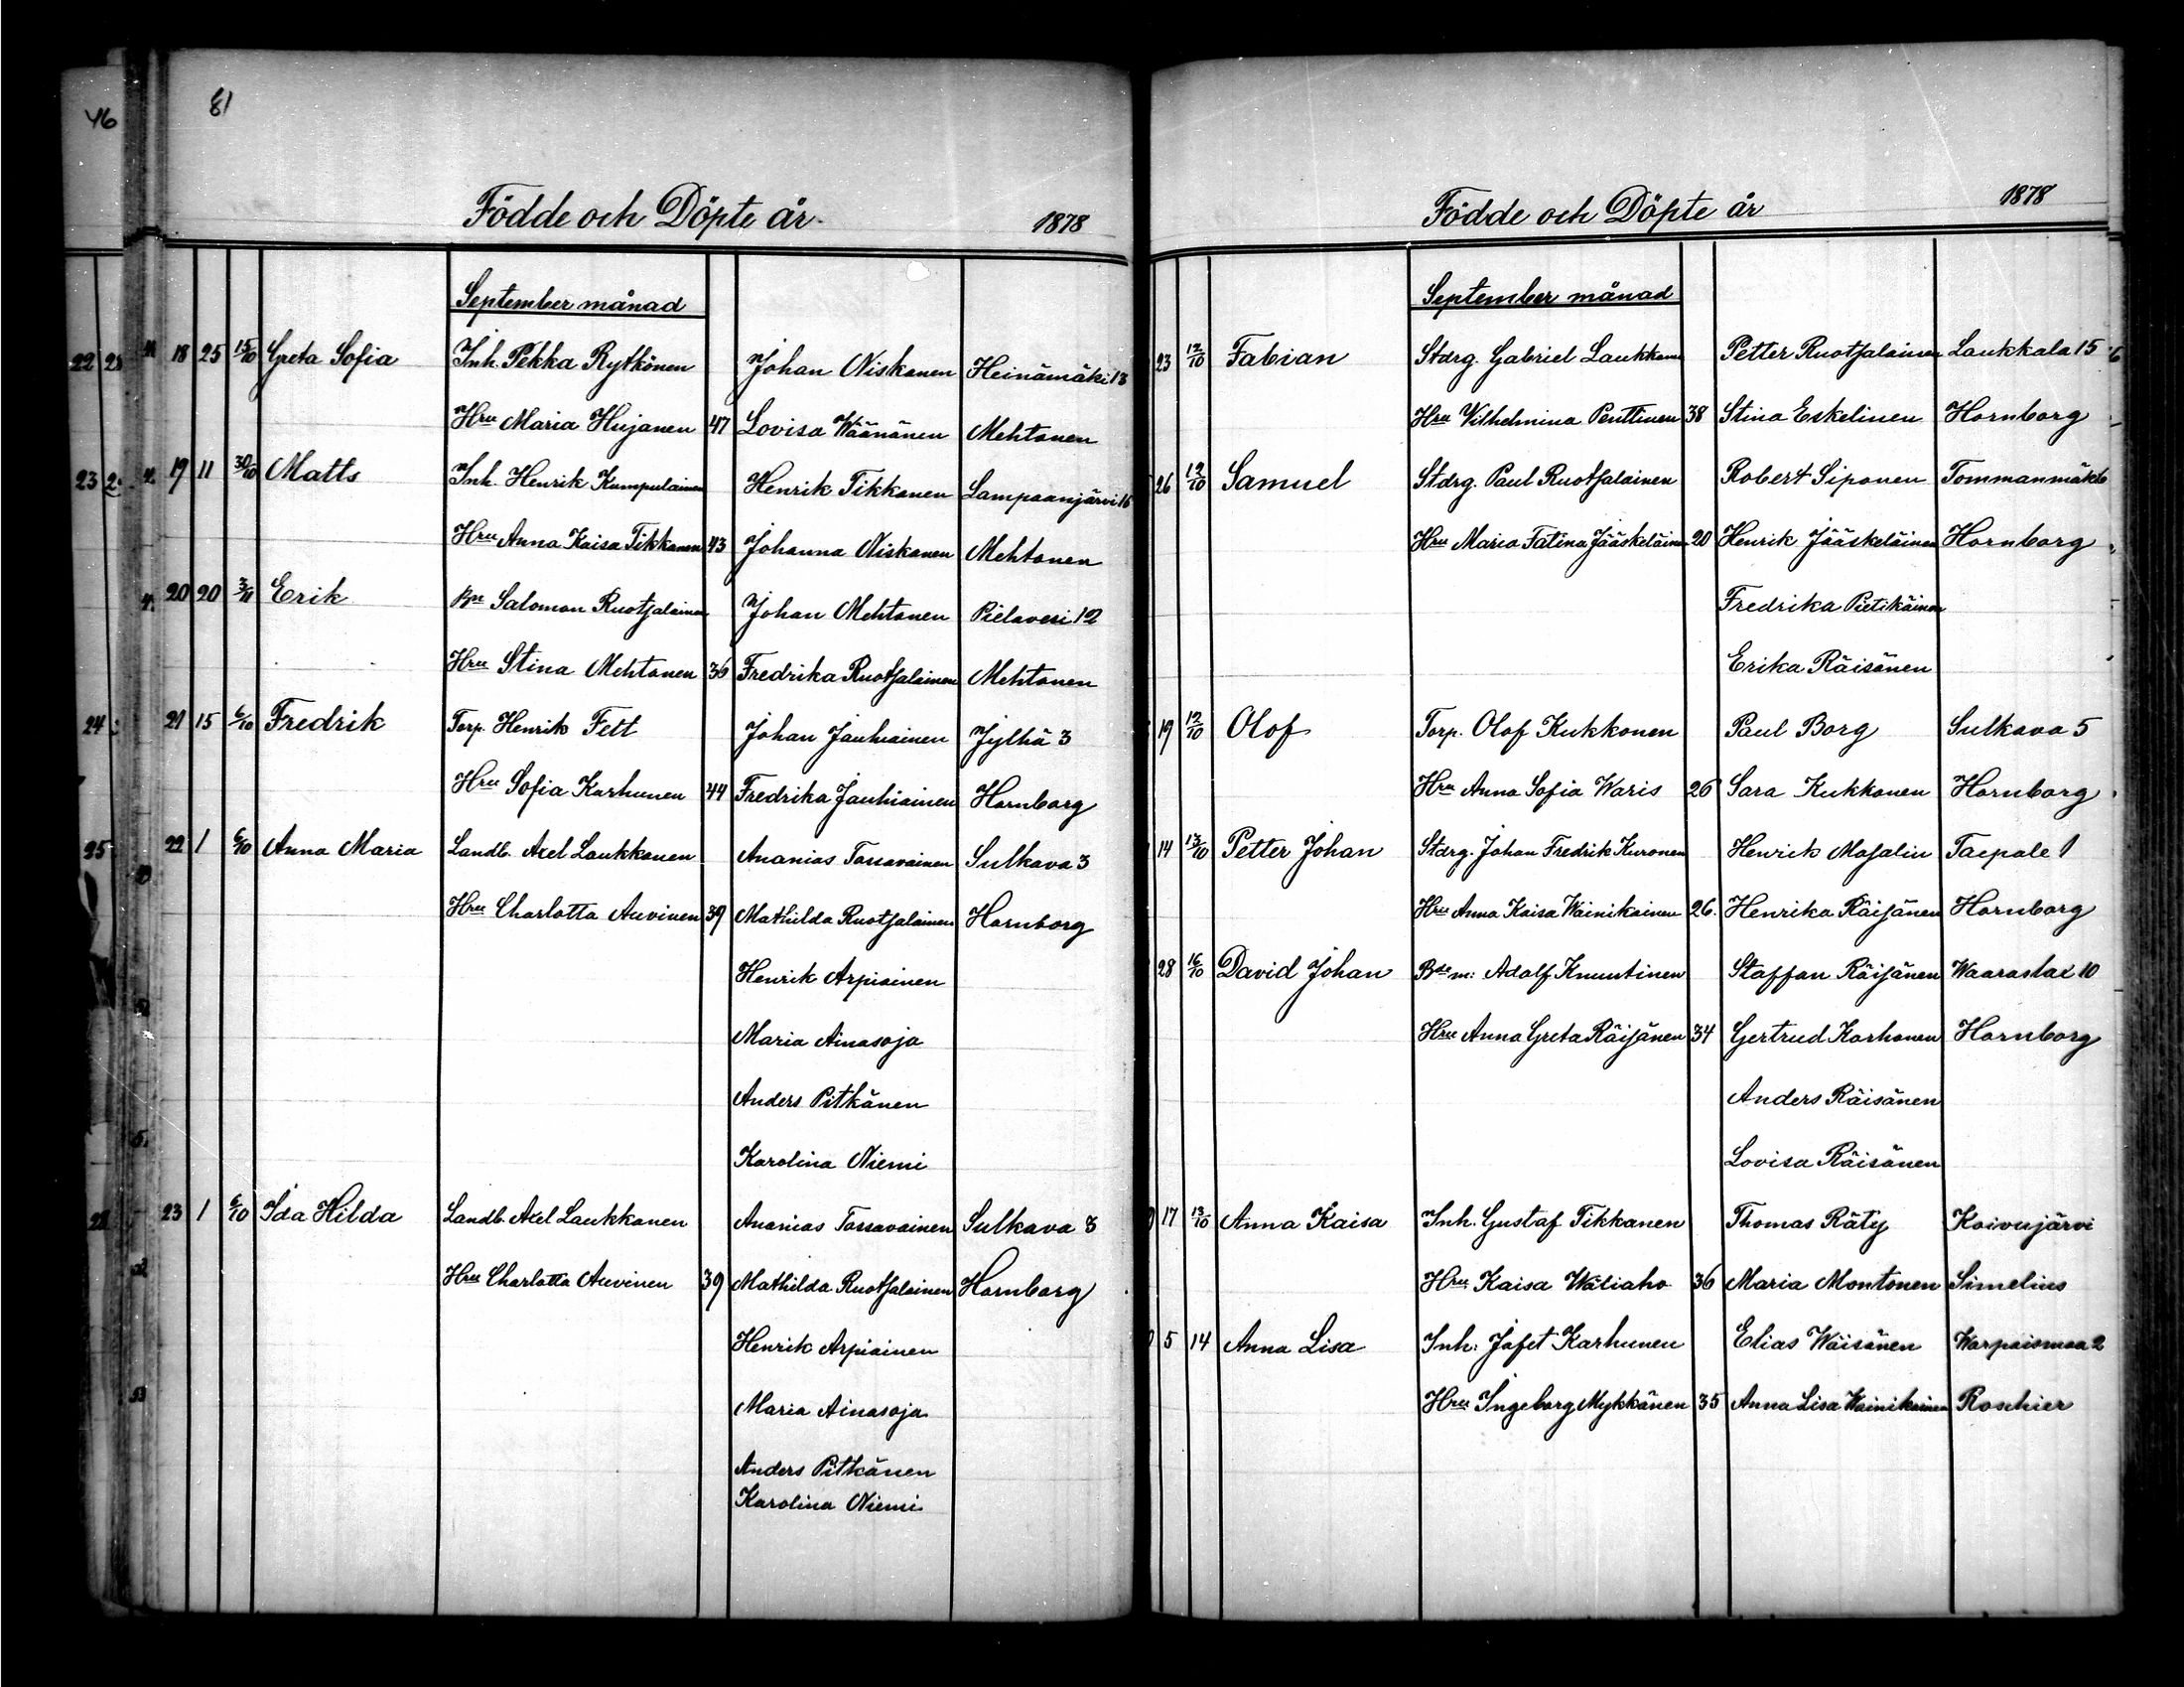 46
81
Födde och Döpte år 1878
September månad
18 25 15/10 Greta Sofia Inh. Pekka Rytkönen Johan Niskanen Heinämäki 13
Hru Maria Hujanen 47 Lovisa Wäänänen Mehtonen
19 11 30/10 Matts Inh. Henrik Kumpulainen Henrik Tikkanen Lampaanjärvi 16
Hru Anna Kaisa Tikkanen 43 Johanna Niskanen Mehtonen
20 20 3/11 Erik Bn Salomon Ruotsalainen Johan Mehtonen Pielavesi 12
Hru Stina Mehtonen 36 Fredrika Ruotsalainen Mehtonen
21 15 6/10 Fredrik Torp. Henrik Fett Johan Jauhiainen Jylhä 3
Hru Sofia Karhunen 44 Fredrika Jauhiainen Hornborg
22 1 6/10 Anna Maria Landb. Axel Laukkanen Ananias Tossavainen Sulkava 3
Hru Charlotta Auvinen 39 Mathilda Ruotsalainen Hornborg
Henrik Arpiainen
Maria Ainasoja
Anders Pitkänen
Karolina Niemi
23 1 6/10 Ida Hilda Landb. Axel Laukkanen Ananias Tossavainen Sulkava 3
Hru Charlotta Auvinen 39 Mathilda Ruotsalainen Hornborg
Henrik Arpiainen
Maria Ainasoja
Anders Pitkänen
Karolina Niemi
Födde och Döpte år 1878
September månad
23 12/10 Fabian Stdrg. Gabriel Laukkanen Petter Ruotsalainen Laukkala 15
Hru Vilhelmina Penttinen 38 Stina Eskelinen Hornborg
26 12/10 Samuel Stdrg. Paul Ruotsalainen Robert Siponen Tommanmäki 6
Hru Maria Fatina Jääskeläinen 20 Henrik Jääskeläinen Hornborg
Fredrika Pietikäinen
Erika Räisänen
19 12/10 Olof Torp. Olof Kukkonen Paul Borg Sulkava 5
Hru Anna Sofia Waris 26 Sara Kukkonen Hornborg
14 13/10 Petter Johan Stdrg. Johan Fredrik Kuronen Henrik Masalin Taipale 1
Hru Anna Kaisa Wainikainen 26. Henrika Räisänen Hornborg
28 16/10 David Johan Bdem: Adolf Knuutinen Staffan Räisänen Waaraslax 10
Hru Anna Greta Räisänen 34 Gertrud Korhonen Hornborg
Anders Räisänen
Lovisa Räisänen
17 13/10 Anna Kaisa Inh. Gustaf Tikkanen Thomas Räty Koivujärvi
Hru Kaisa Wäliaho 36 Maria Montonen Simelius
5 14 Anna Lisa Inh: Jafet Karhunen Elias Wäisänen Warpaismaa 2
Hru Ingeborg Mykkänen 35 Anna Lisa Wainikainen Roschier